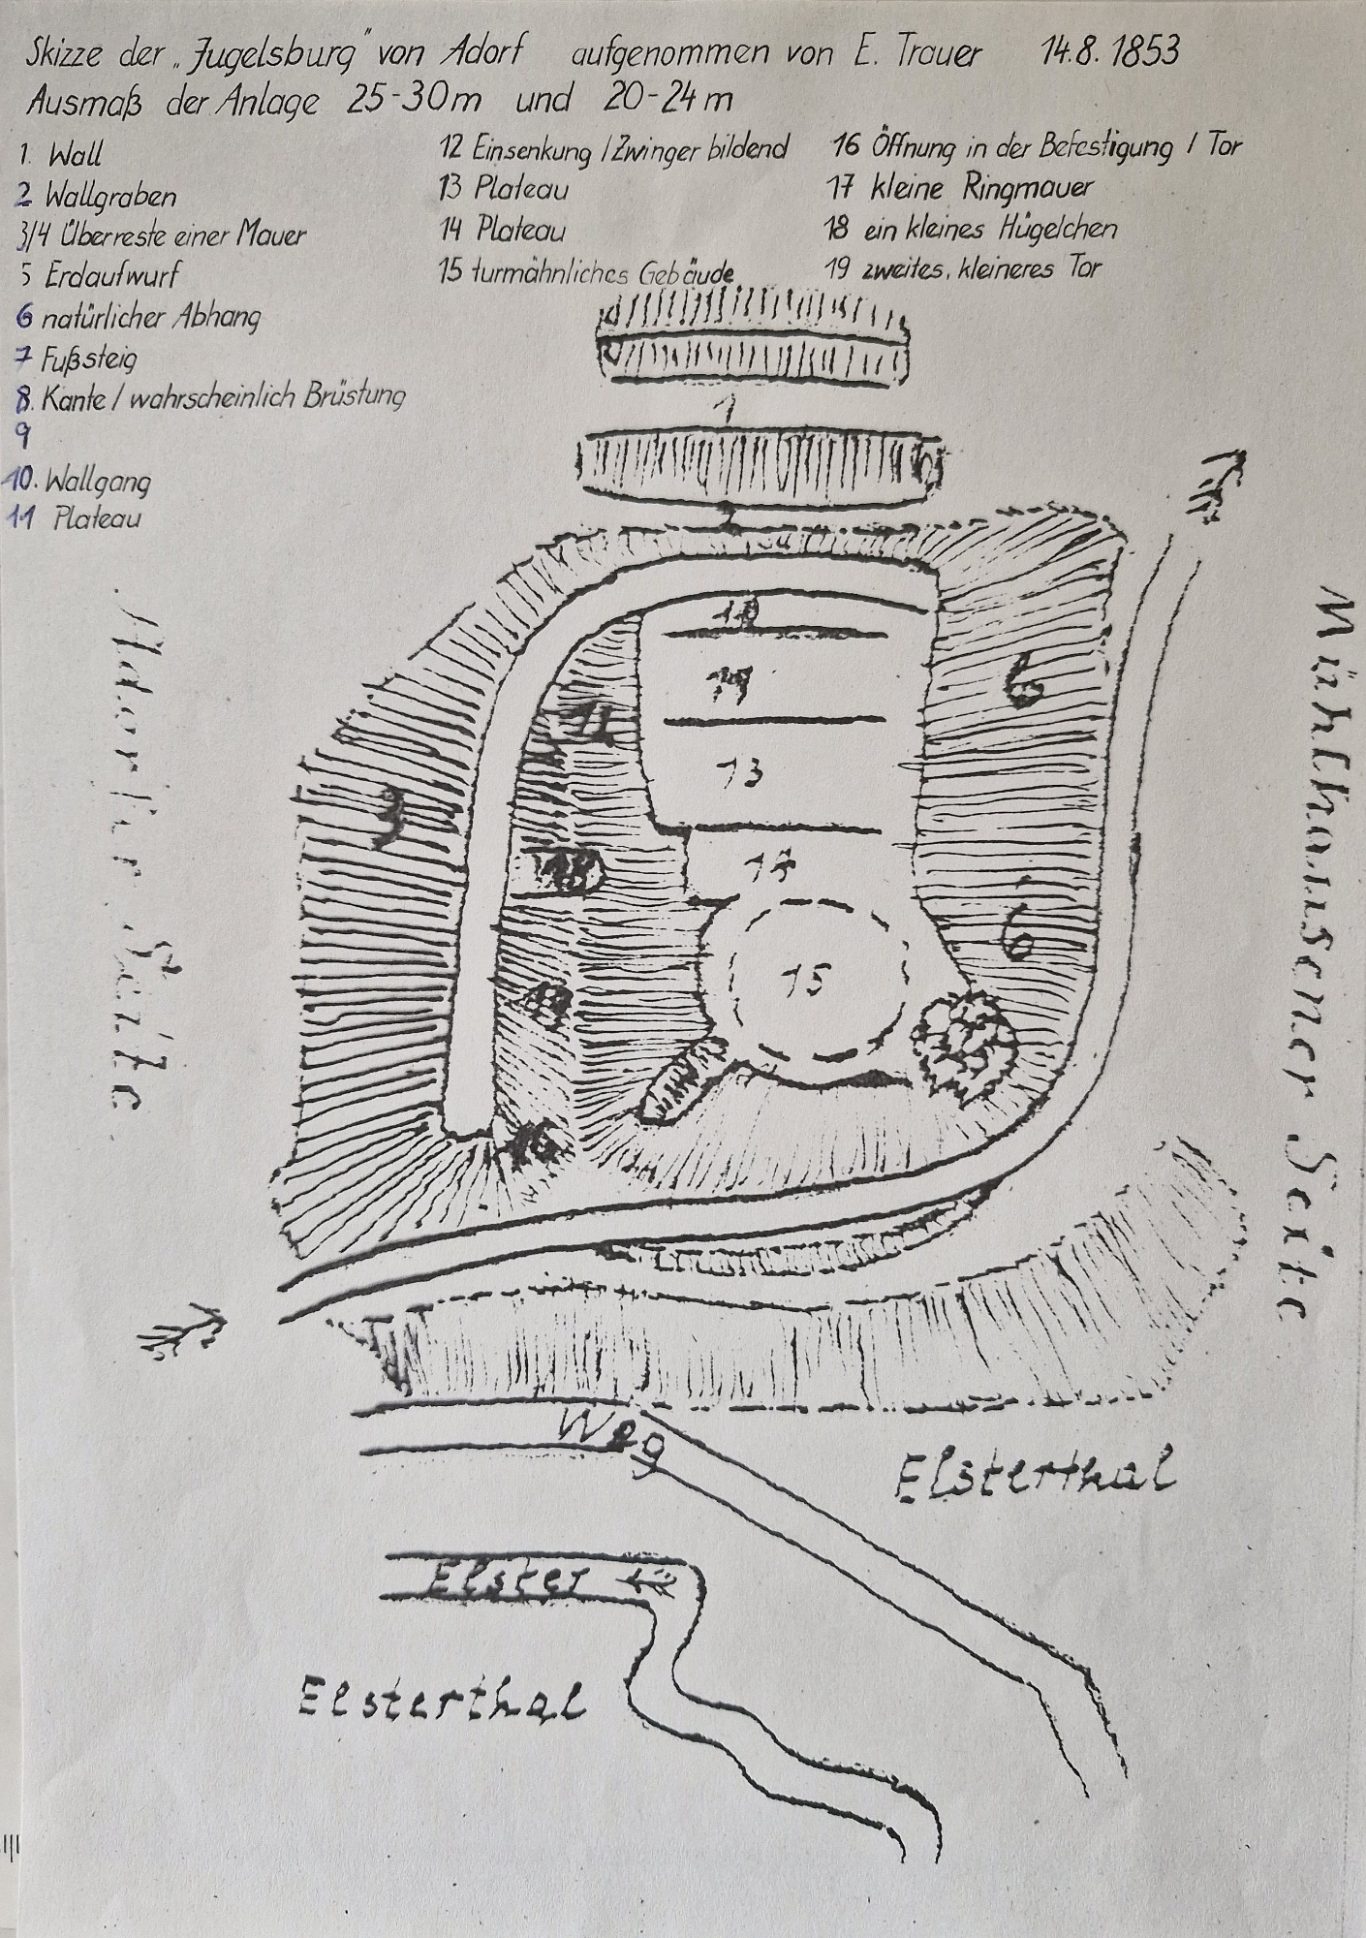 Skizze der „Jugelsburg" von Adorf aufgenommen von E. Trauer 14.8.1853
Ausmaß der Anlage 25-30m und 20-24m
1. Wall
2 Wallgraben
3/4 Überreste einer Mauer
5 Erdaufwurf
6 natürlicher Abhang
7 Fußsteig
8. Kante / wahrscheinlich Brüstung
9
10. Wallgang
11 Plateau
12 Einsenkung / Zwinger bildend
13 Plateau
14 Plateau
15 turmähnliches Gebäude
16 Öffnung in der Befestigung / Tor
17 kleine Ringmauer
18 ein kleines Hügelchen
19 zweites, kleineres Tor
1
2
6
3
13
14
6
15
Adorfer Seite
Mühlhausener Seite
Weg
Elsterthal
Elster
Elsterthal